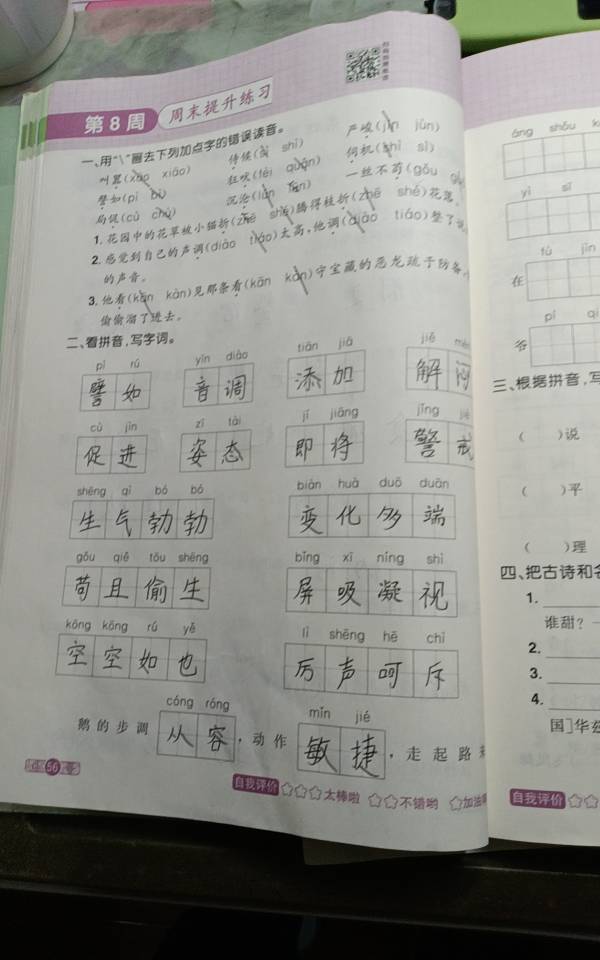 第8周 周末提升练习
一、用“\”画去下列加点字的错误读音。
侍候(sì shì) 严峻(jìn jùn)
叫嚣(xāo xiāo) 狂吠(fèi quǎn) 伺机(shì sì)
譬如(pì bì) 沉沦 一丝不苟(gǒu
局促(cù chù)
1. 花园中的花草被小猫折(zhē shé)腾得枝折(zhē shé)花落。
2. 感觉到自己的声调(diào tiáo)太高,他调(diào tiáo)整了
的声音。
3. 他看(kān kàn)见那条看(kān kàn)守宝藏的恶龙疏于防备
偷偷溜了进去。
二、看拼音,写字词。
pì rú yīn diào tiān jiā jiě
譬如 音调 添加 解
cù jìn zī tài jí jiāng jǐng
促进 姿态 即将 警戒
shēng qì bó bó biàn huà duō duān
生气勃勃 变化多端
gǒu qiě tōu shēng bǐng xī níng shì
苟且偷生 屏吸凝视
kōng kōng rú yě lì shēng hē chì
空空如也 厉声呵斥
cóng róng mǐn jié
鹅的步调从容,动作敏捷,走起路来
56
自我评价 ☆☆☆太棒啦 ☆☆不错哟 ☆加油
áng shǒu
yì sī
在
pì
爷
三、根据拼音,写
( )说
( )平
( )理
四、把古诗和名
1.
谁甜?
2.
3.
4.
国]华兹
自我评价 ☆☆